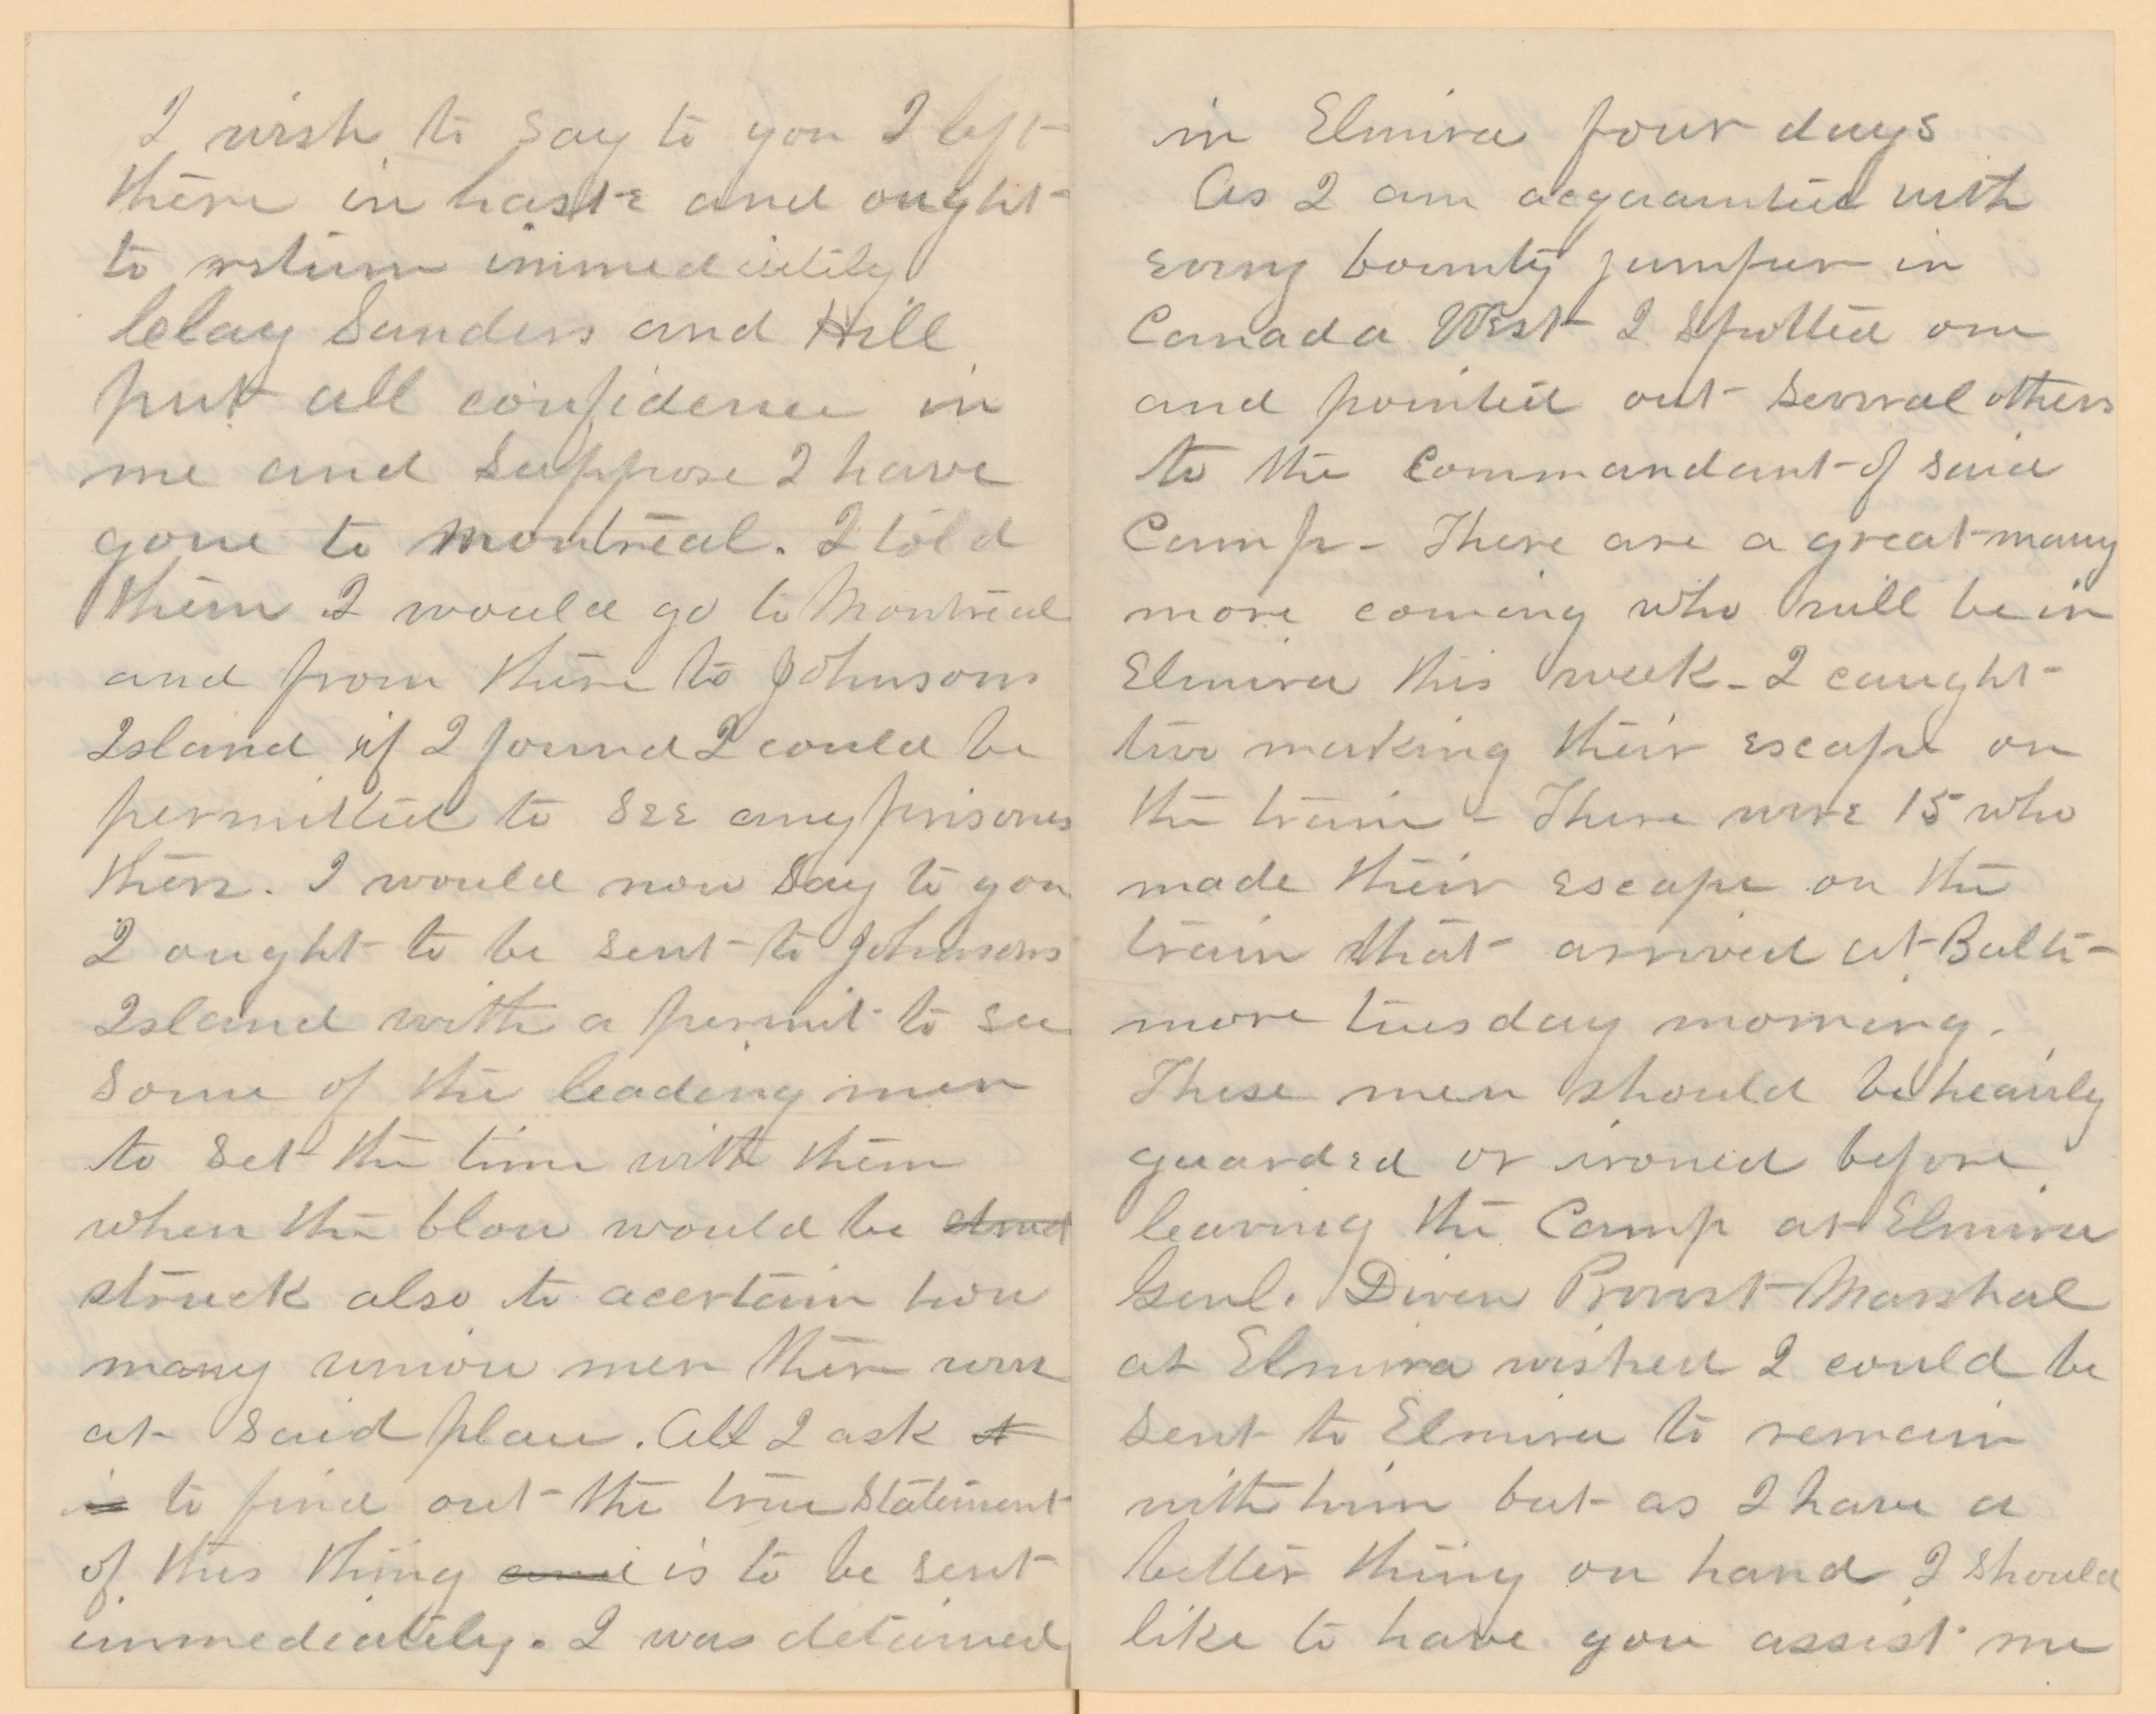 I wish to say to you I left
there in haste and ought
to return immediately
Clay Sanders and Hill
put all confidence in
me and suppose I have
gone to Montreal. I told
them I would go to Montreal
and from there to Johnsons
Island if I found I could be
permitted to see any prisoners
there. I would now say to you
I ought to be sent to Johnsons
Island with a permit to see
some of the leading men
to set the time with them
when the blow would be
struck also to acertain how
many union men there were
at said place. All I ask
is to find out the true statement
of this thing and is to be sent
immediately. I was detained
in Elmira four days
As I am acquainted with
every bounty jumper in
Canada West I spotted one
and pointed out several others
to the Commandant of said
Camp - There are a great many
more coming who will be in
Elmira this week - I caught
two making their escape on
the train - There were 15 who
made their escape on the
train that arrived at Balti-
more tuesday morning.
These men should be heavily
guarded or ironed before
leaving the Camp at Elmira
Genl. Diven Provost Marshal
at Elmira wished I could be
sent to Elmira to remain
with him but as I have a
better thing on hand I should
like to have you assist me